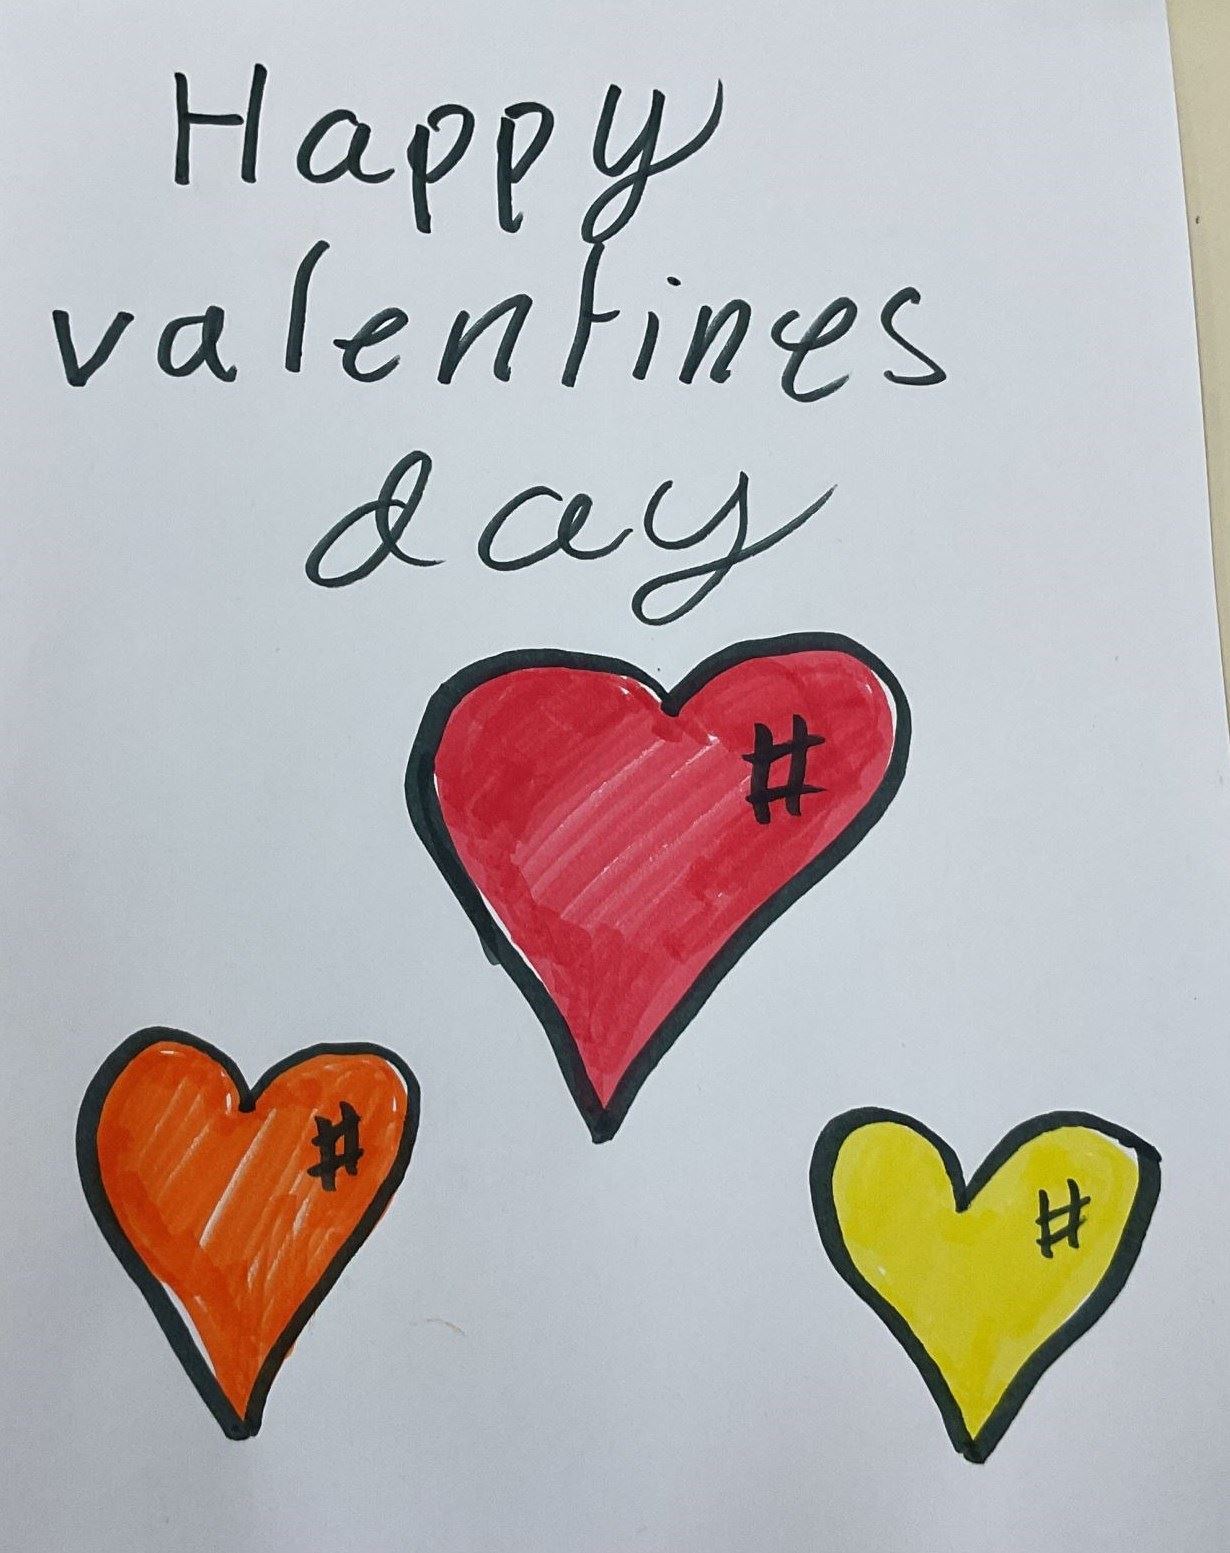 Happy
valentines
day
#
#
#